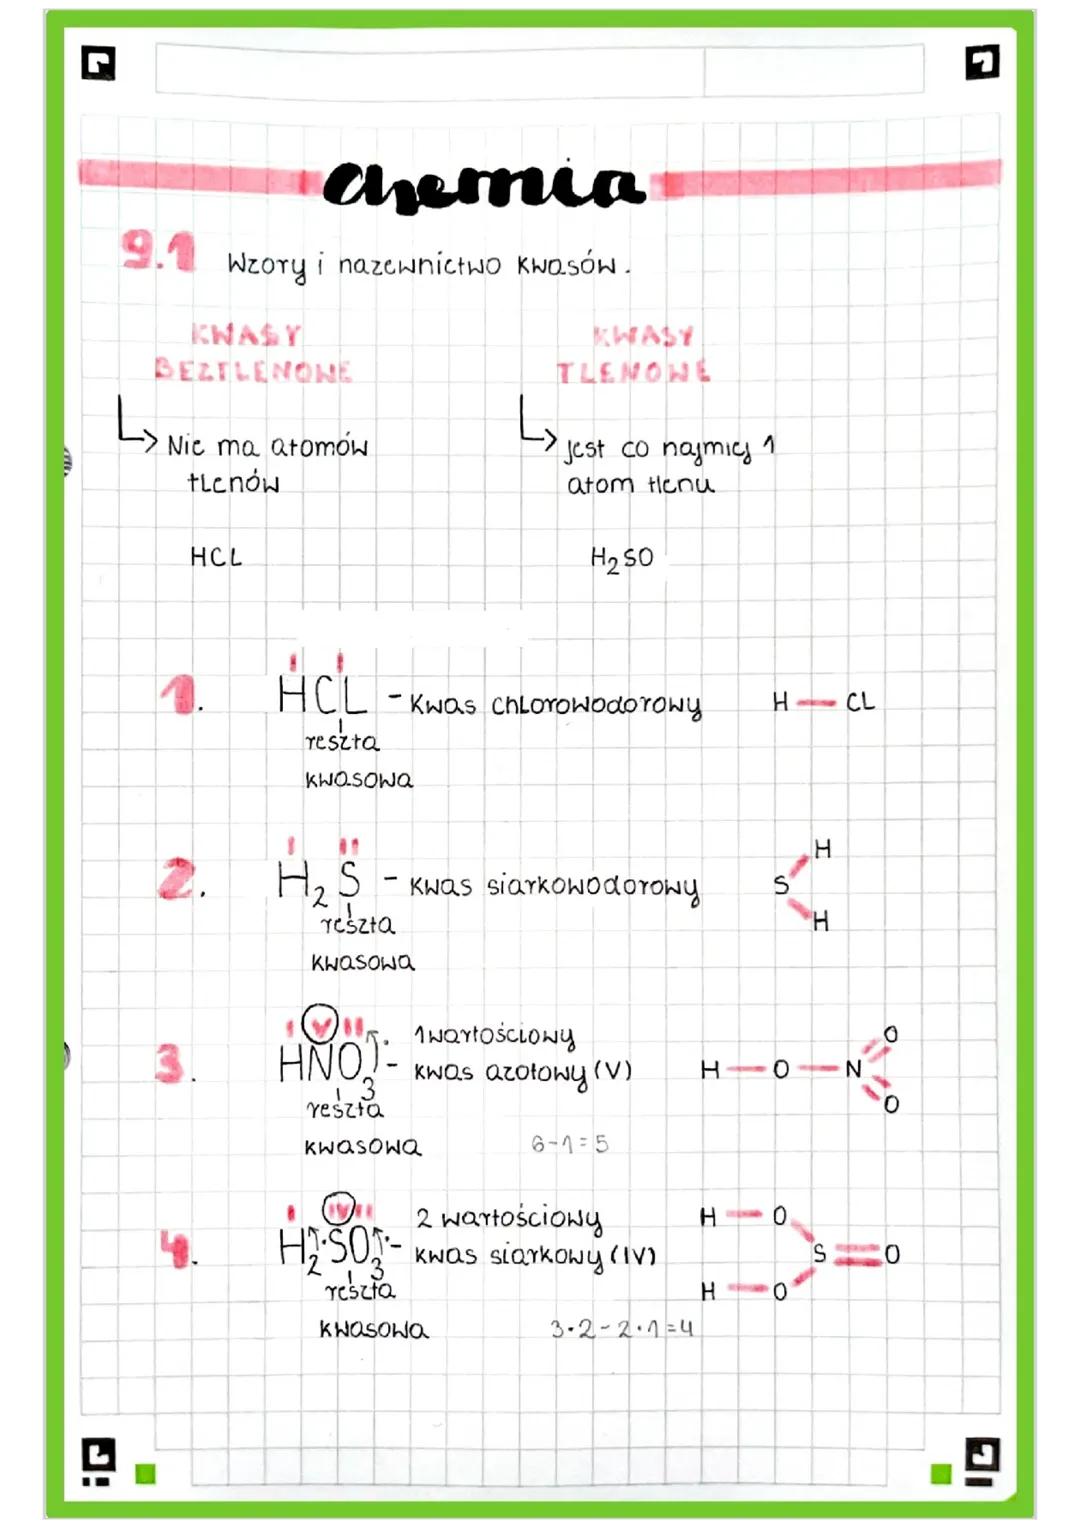 chemia
9.1 Wzory i nazewnictwo kwasów.
KWASY
BEZTLENOWE
Nie ma atomów
tlenów
HCL
KWASY
TLENOWE
jest co najmiej 1
atom tlenu
H₂SO
1. I I
HCL - Kwas chlorowodorowy H — CL
reszta
kwasowa
2. I II
H₂S - Kwas siarkowodorowy
reszta
kwasowa
H
S
H
3. I V II 1wartościowy
HNO₃ - kwas azotowy (V)
reszta
kwasowa 6-1=5
O
H — O — N
O
4. I IV II 2 wartościowy
H₂SO₃ - kwas siarkowy (IV)
reszta
kwasowa 3·2-2·1=4
H — O
S = O
H — O